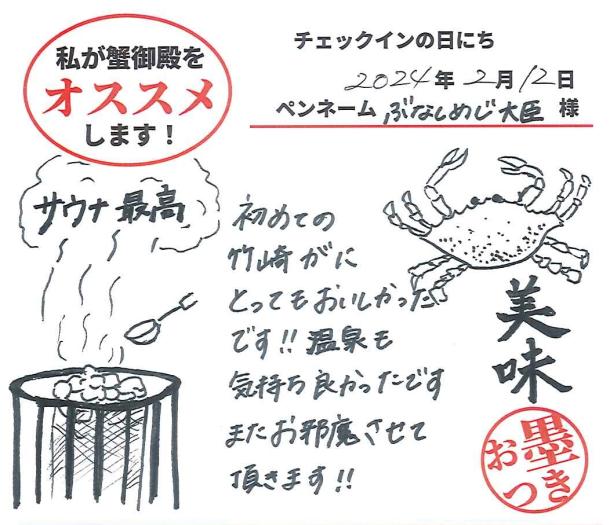 私が蟹御殿を
オススメ
します！
チェックインの日にち
2024年2月12日
ペンネーム ぶなしめじ大臣 様
サウナ最高
初めての
竹崎がに
とってもおいしかった
です!!温泉も
気持ち良かったです
またお邪魔させて
頂きます!!
美味
お墨つき